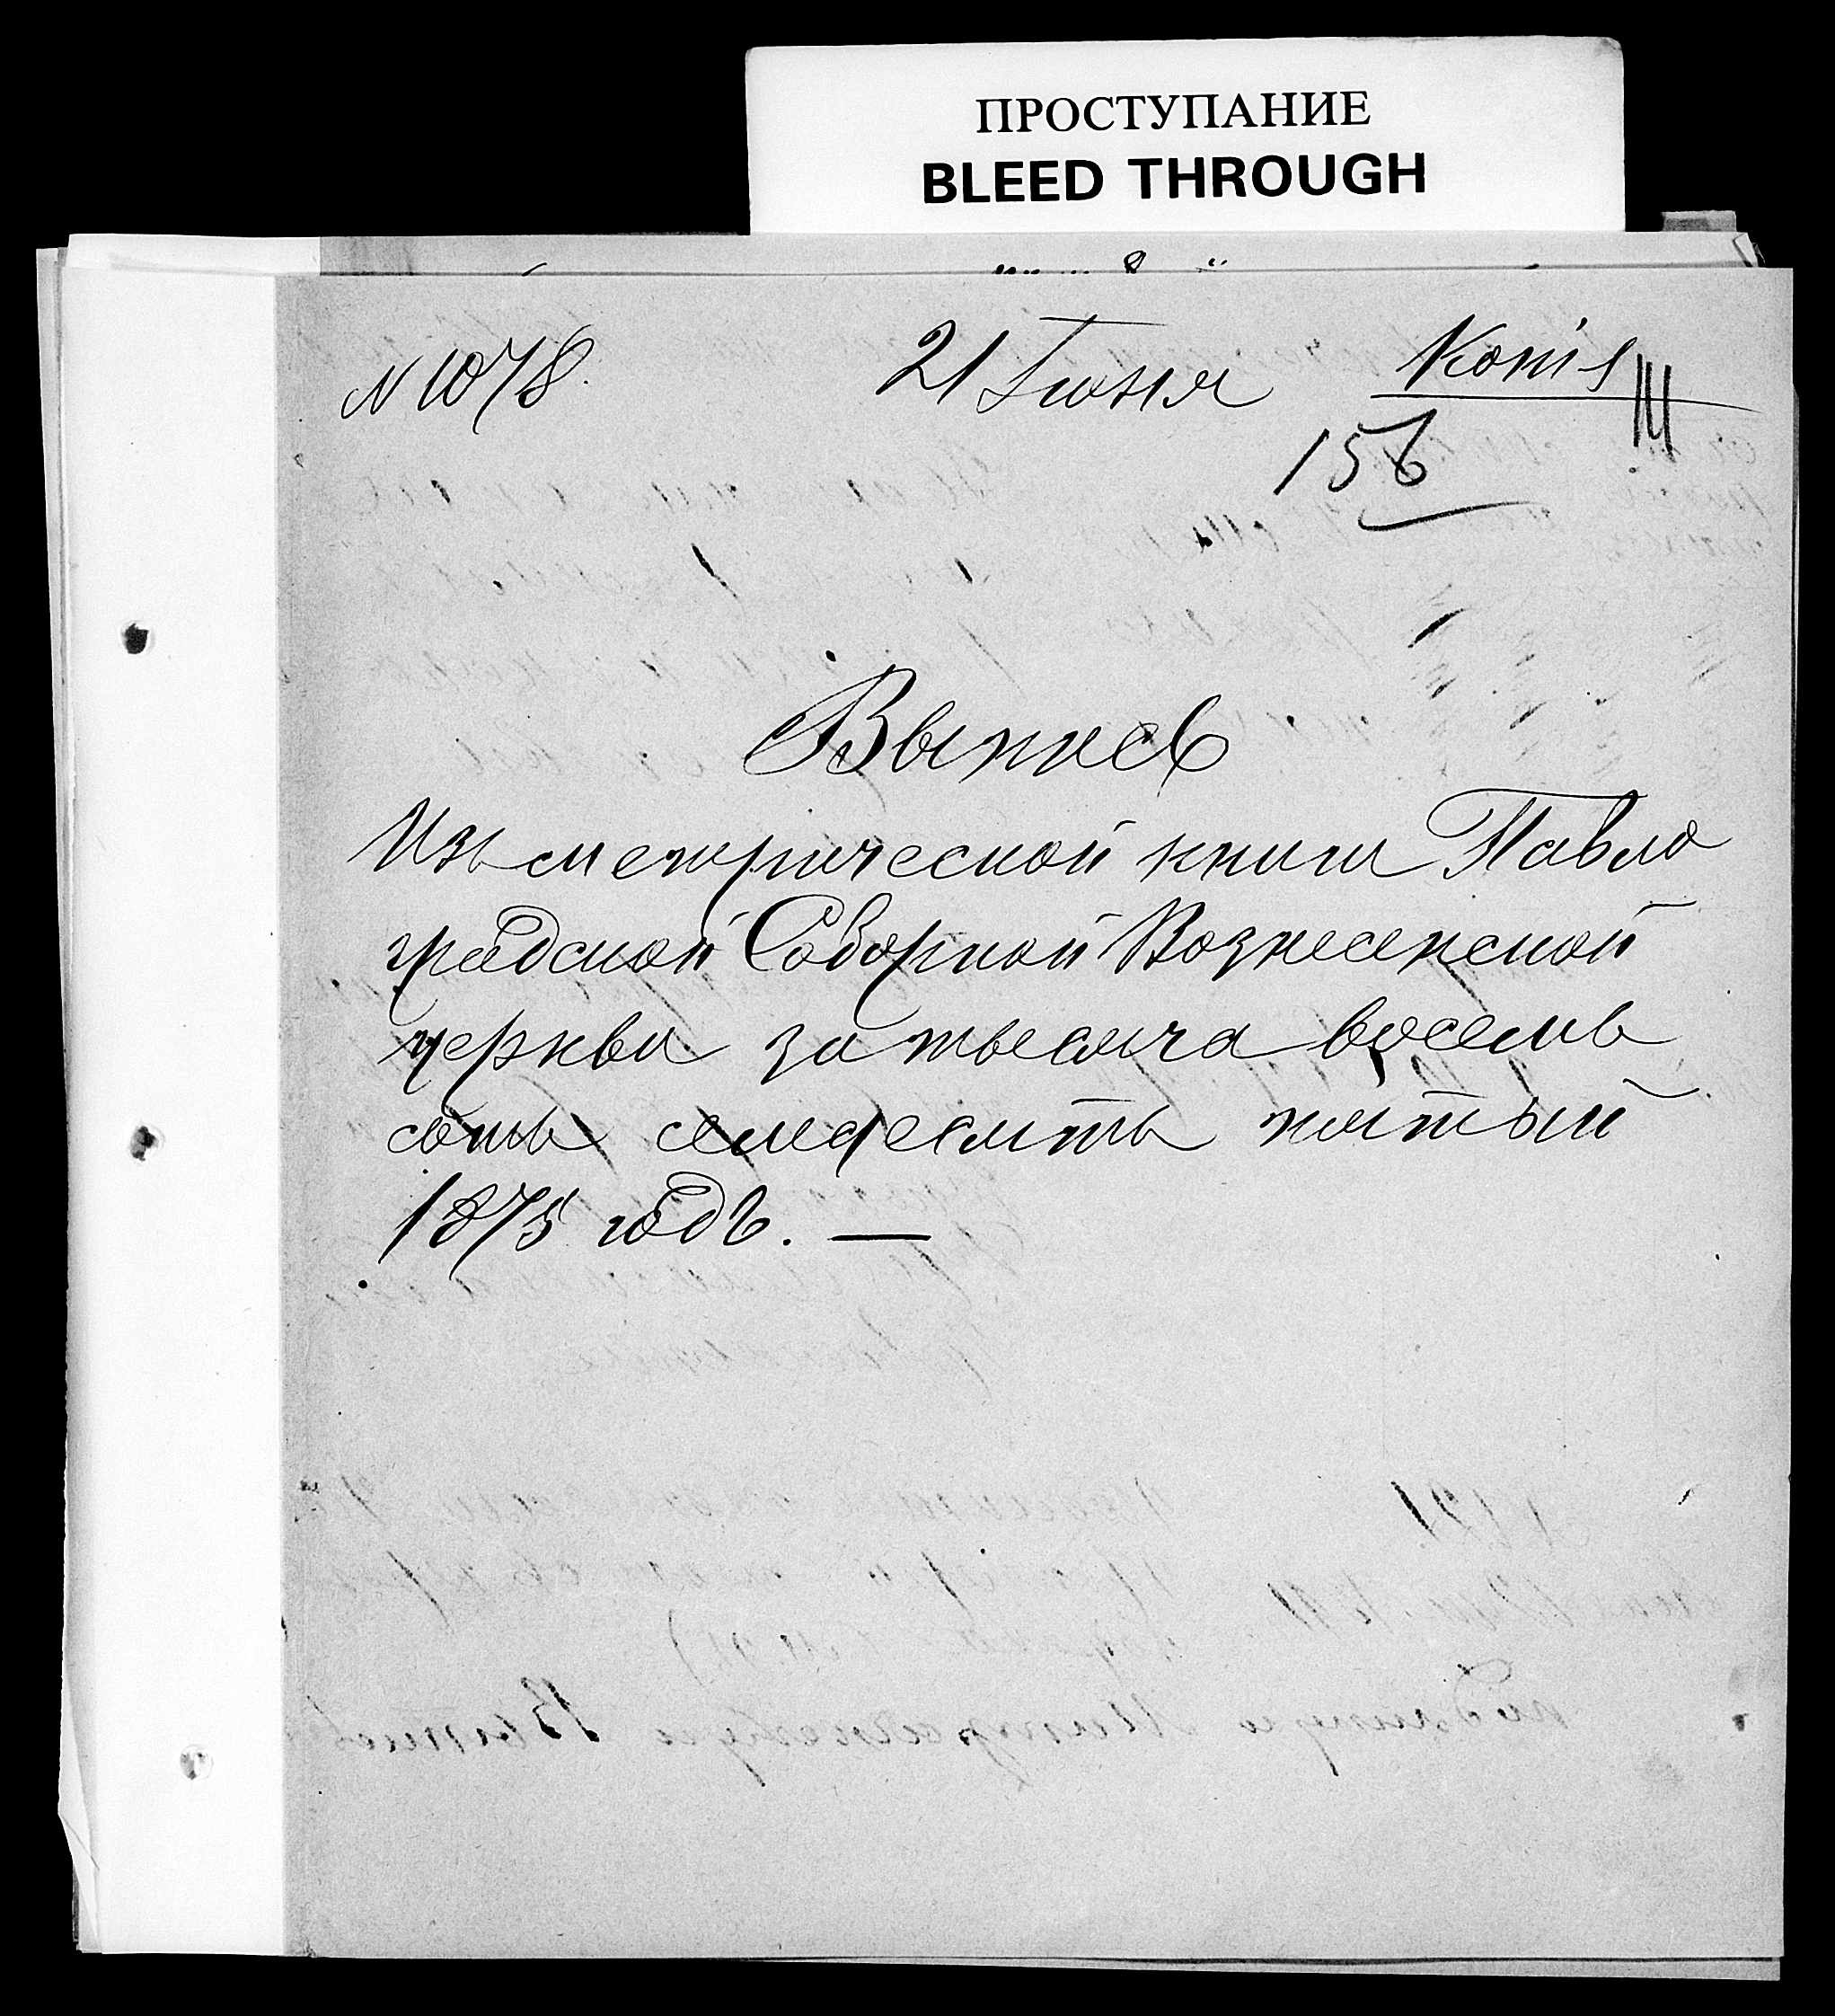 ПРОСТУПАНИЕ
BLEED THROUGH
N 1078.
21 Iюня
Копія
III
156
Выпись
Изъ метрической книги Павло
градской Соборной Вознесенской
церкви за тысяча восемь
сотъ семдесятъ пятый
1875 годъ. —